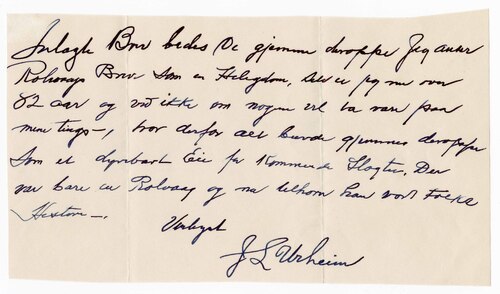 Inlagte Brev bedes De gjemme deroppe Jeg anser
Rolvaags Breve som en Helligdom, Selv er jeg nu over
82 aar og ved ikke om nogen vil ta vare paa
mine tings—, tror derfor alt burde gjemmes deroppe
som et dyrebart Eie for kommende Slægter, Der
var bare en Rolvaag og na tilhører han vort Folks
Historie—.
Venligst
J L Urheim